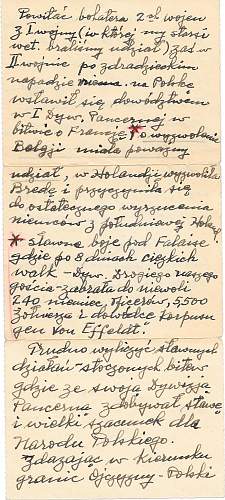 Powitać bohatera 2ch wojen
z I wojny (w której my starsi
wet. braliśmy udział) zaś w
II wojnie po zdradzieckim
napadzie na Polskę
wsławił się dowództwem
w I Dyw. Pancernej w
bitwie o Francję * o wyzwolenie
Belgji miała poważny
udział, w Holandji wyzwoliła
Bredę i przyczyniła się
do ostatecznego wyrzucenia
niemców z południowej Holand.
* sławne boje pod Falaise
gdzie po 8 dniach ciężkich
walk - Dyw. Drogiego naszego
gościa - zabrała do niewoli
140 niemiec. oficerów, 5,500
żołnierza z dowódcą korpusu
gen von Elfeldt."
Trudno wyliczyć sławnych
działań - stoczonych bitew,
gdzie ze swoją Dywizją
Pancerną zdobywał sławę
i wielki szacunek dla
Narodu Polskiego.
Zdążając w kierunku
granic Ojczyzny - Polski